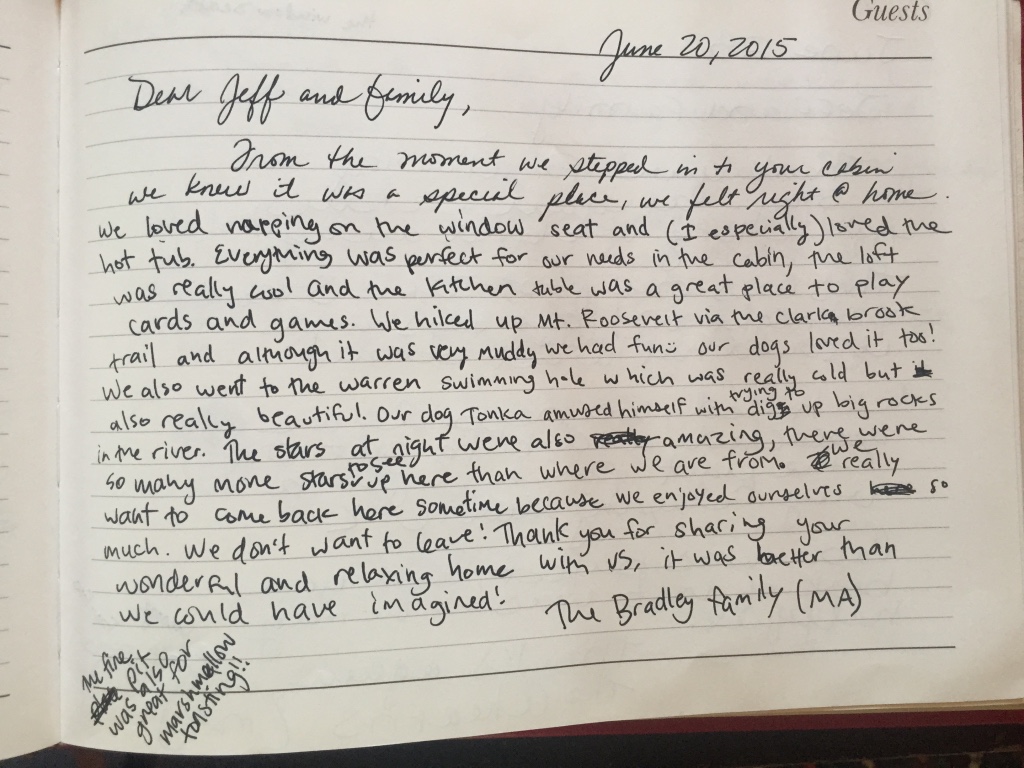 Guests
June 20, 2015
Dear Jeff and family,
From the moment we stepped in to your cabin
we knew it was a special place, we felt right @ home.
We loved napping on the window seat and (I especially) loved the
hot tub. Everything was perfect for our needs in the cabin, the loft
was really cool and the kitchen table was a great place to play
cards and games. We hiked up Mt. Roosevelt via the clark brook
trail and although it was very muddy we had fun :) our dogs loved it too!
We also went to the warren swimming hole which was really cold but
also really beautiful. Our dog Tonka amused himself with trying to dig up big rocks
in the river. The stars at night were also amazing, there were
so many more stars to see up here than where we are from. We really
want to come back here sometime because we enjoyed ourselves so
much. We don't want to leave! Thank you for sharing your
wonderful and relaxing home with us, it was better than
we could have imagined!
The Bradley family (MA)
The fire
pit
was also
great for
marshmallow
toisting!!